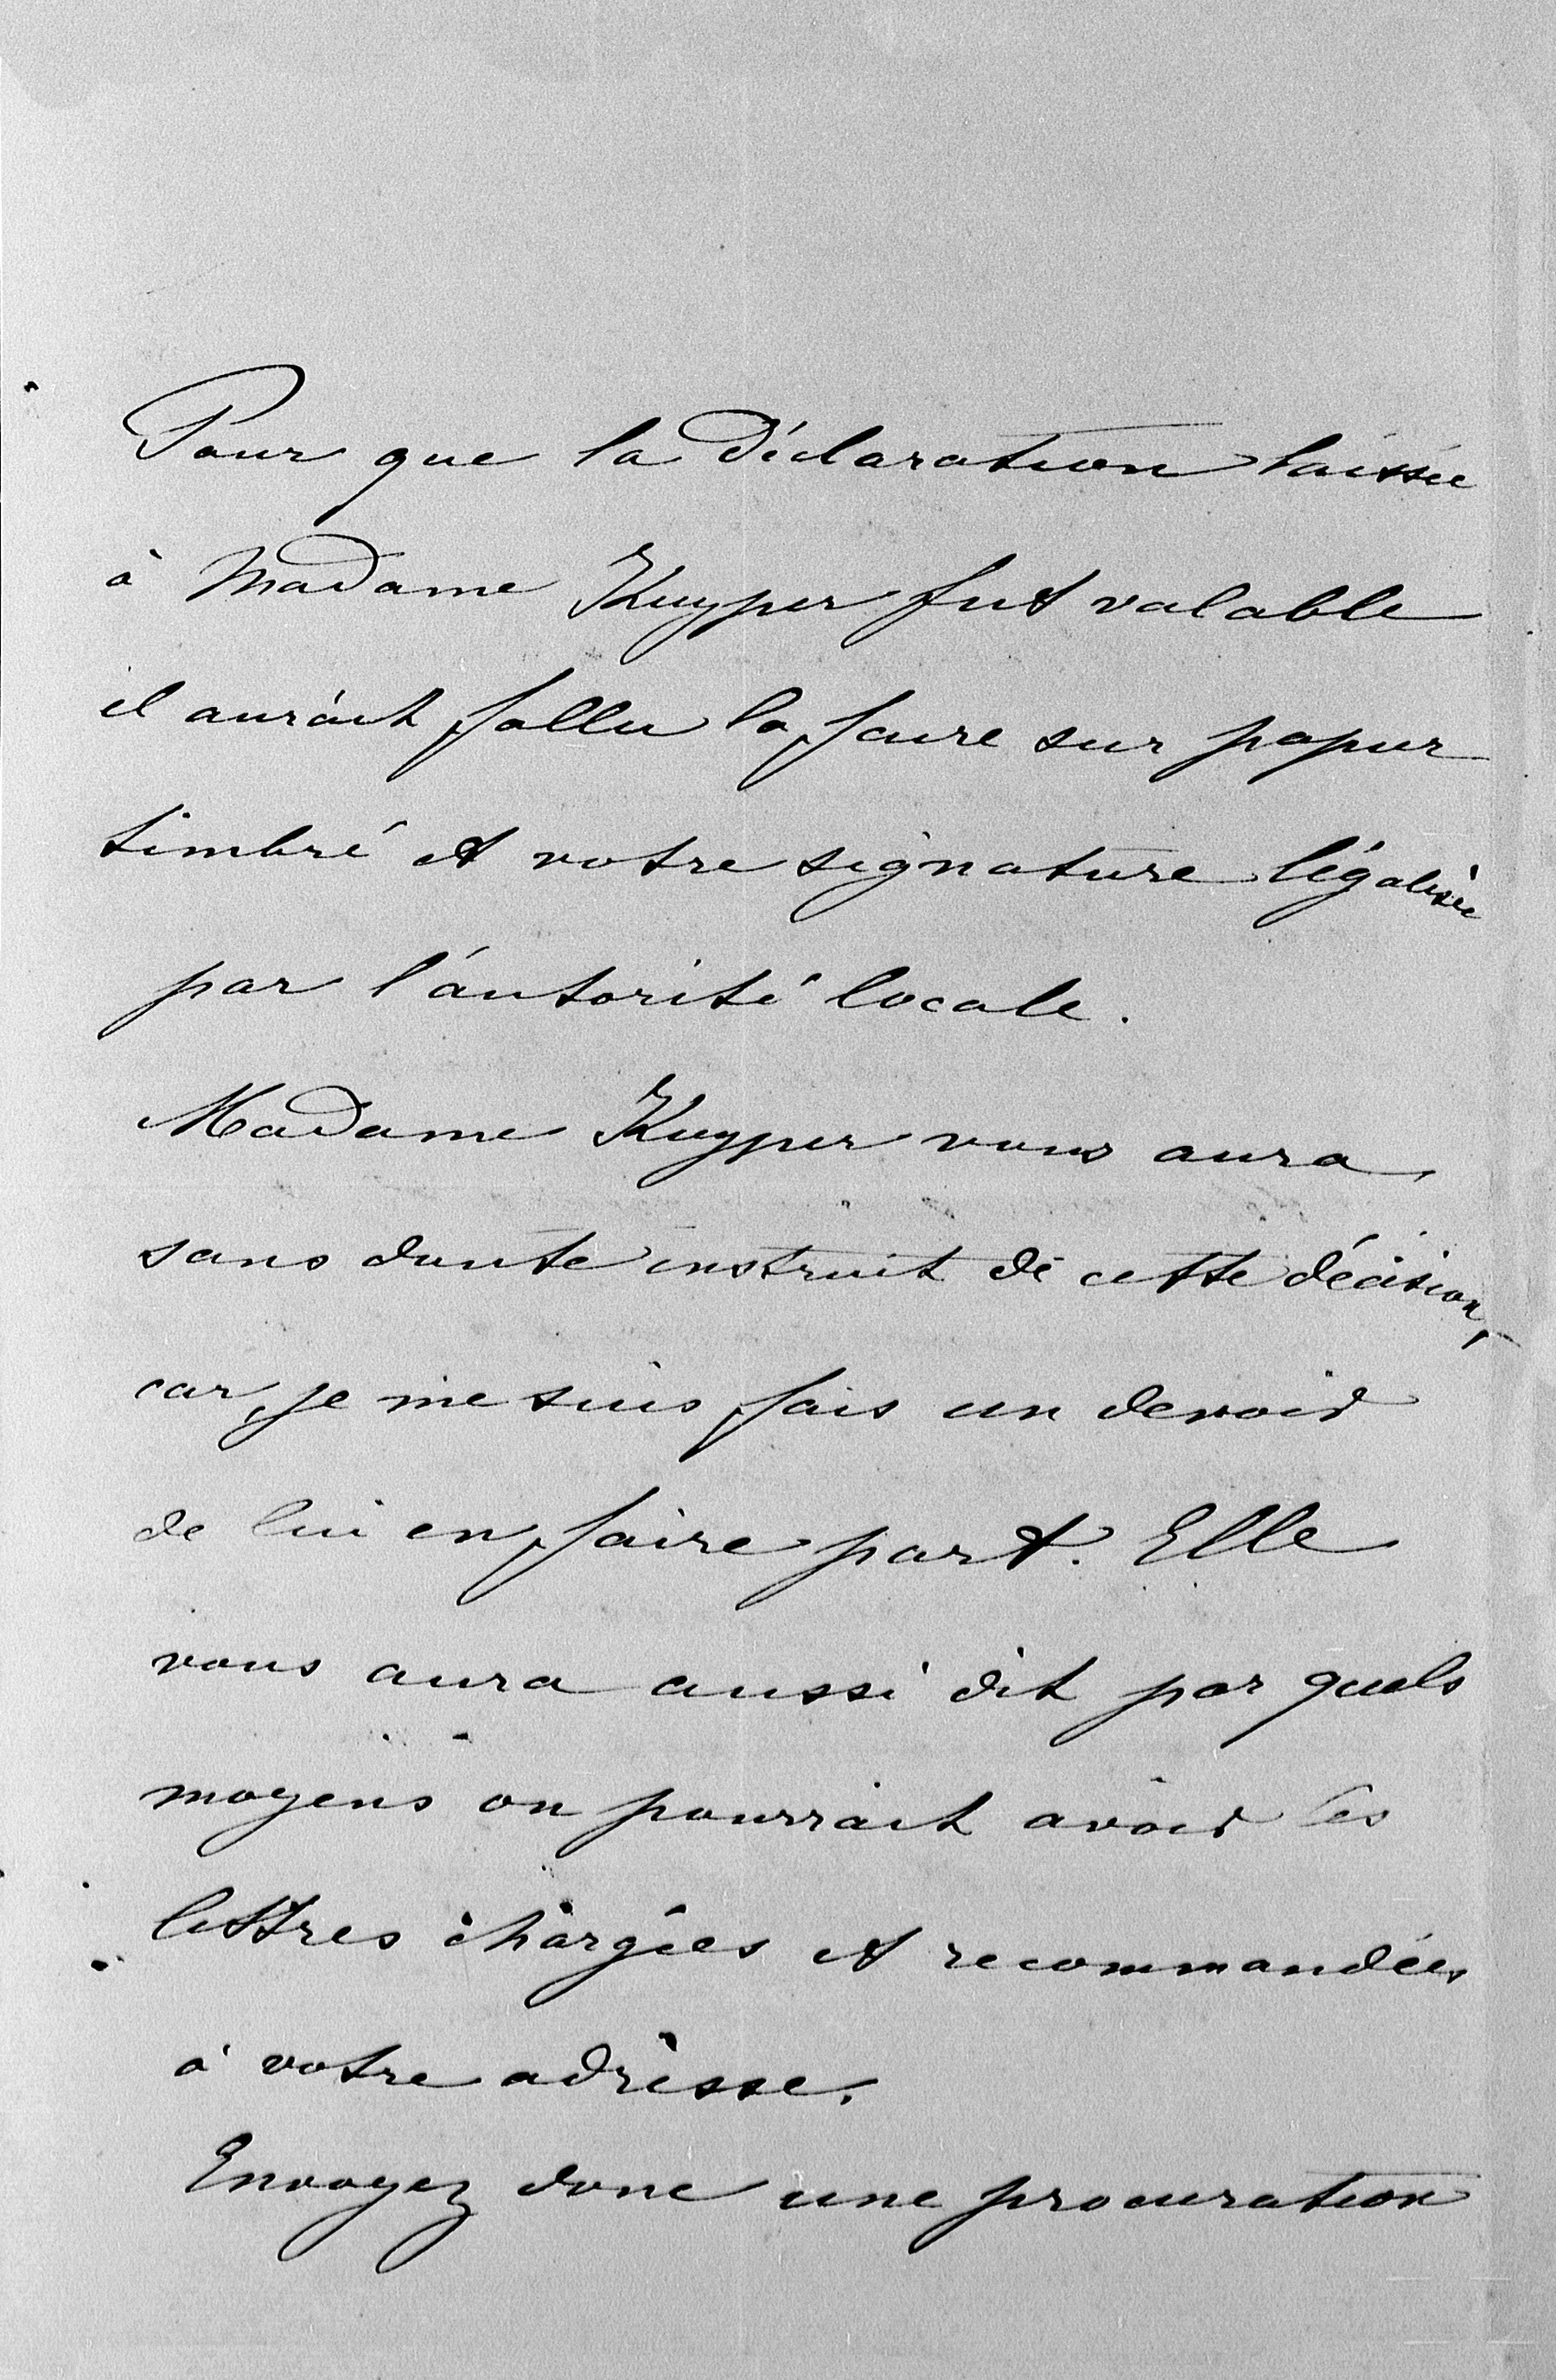 Pour que la déclaration laissée
à Madame Kuyper fut valable
il aurait fallu la faire sur papier
timbré et votre signature légalisée
par l'autorité locale.
Madame Kuyper vous aura,
sans doute instruit de cette décision,
car je me suis fais un devoir
de lui en faire part. Elle
vous aura aussi dit par quels
moyens on pourrait avoir les
lettres chargées et recommandées
à votre adresse.
Envoyez donc une procuration